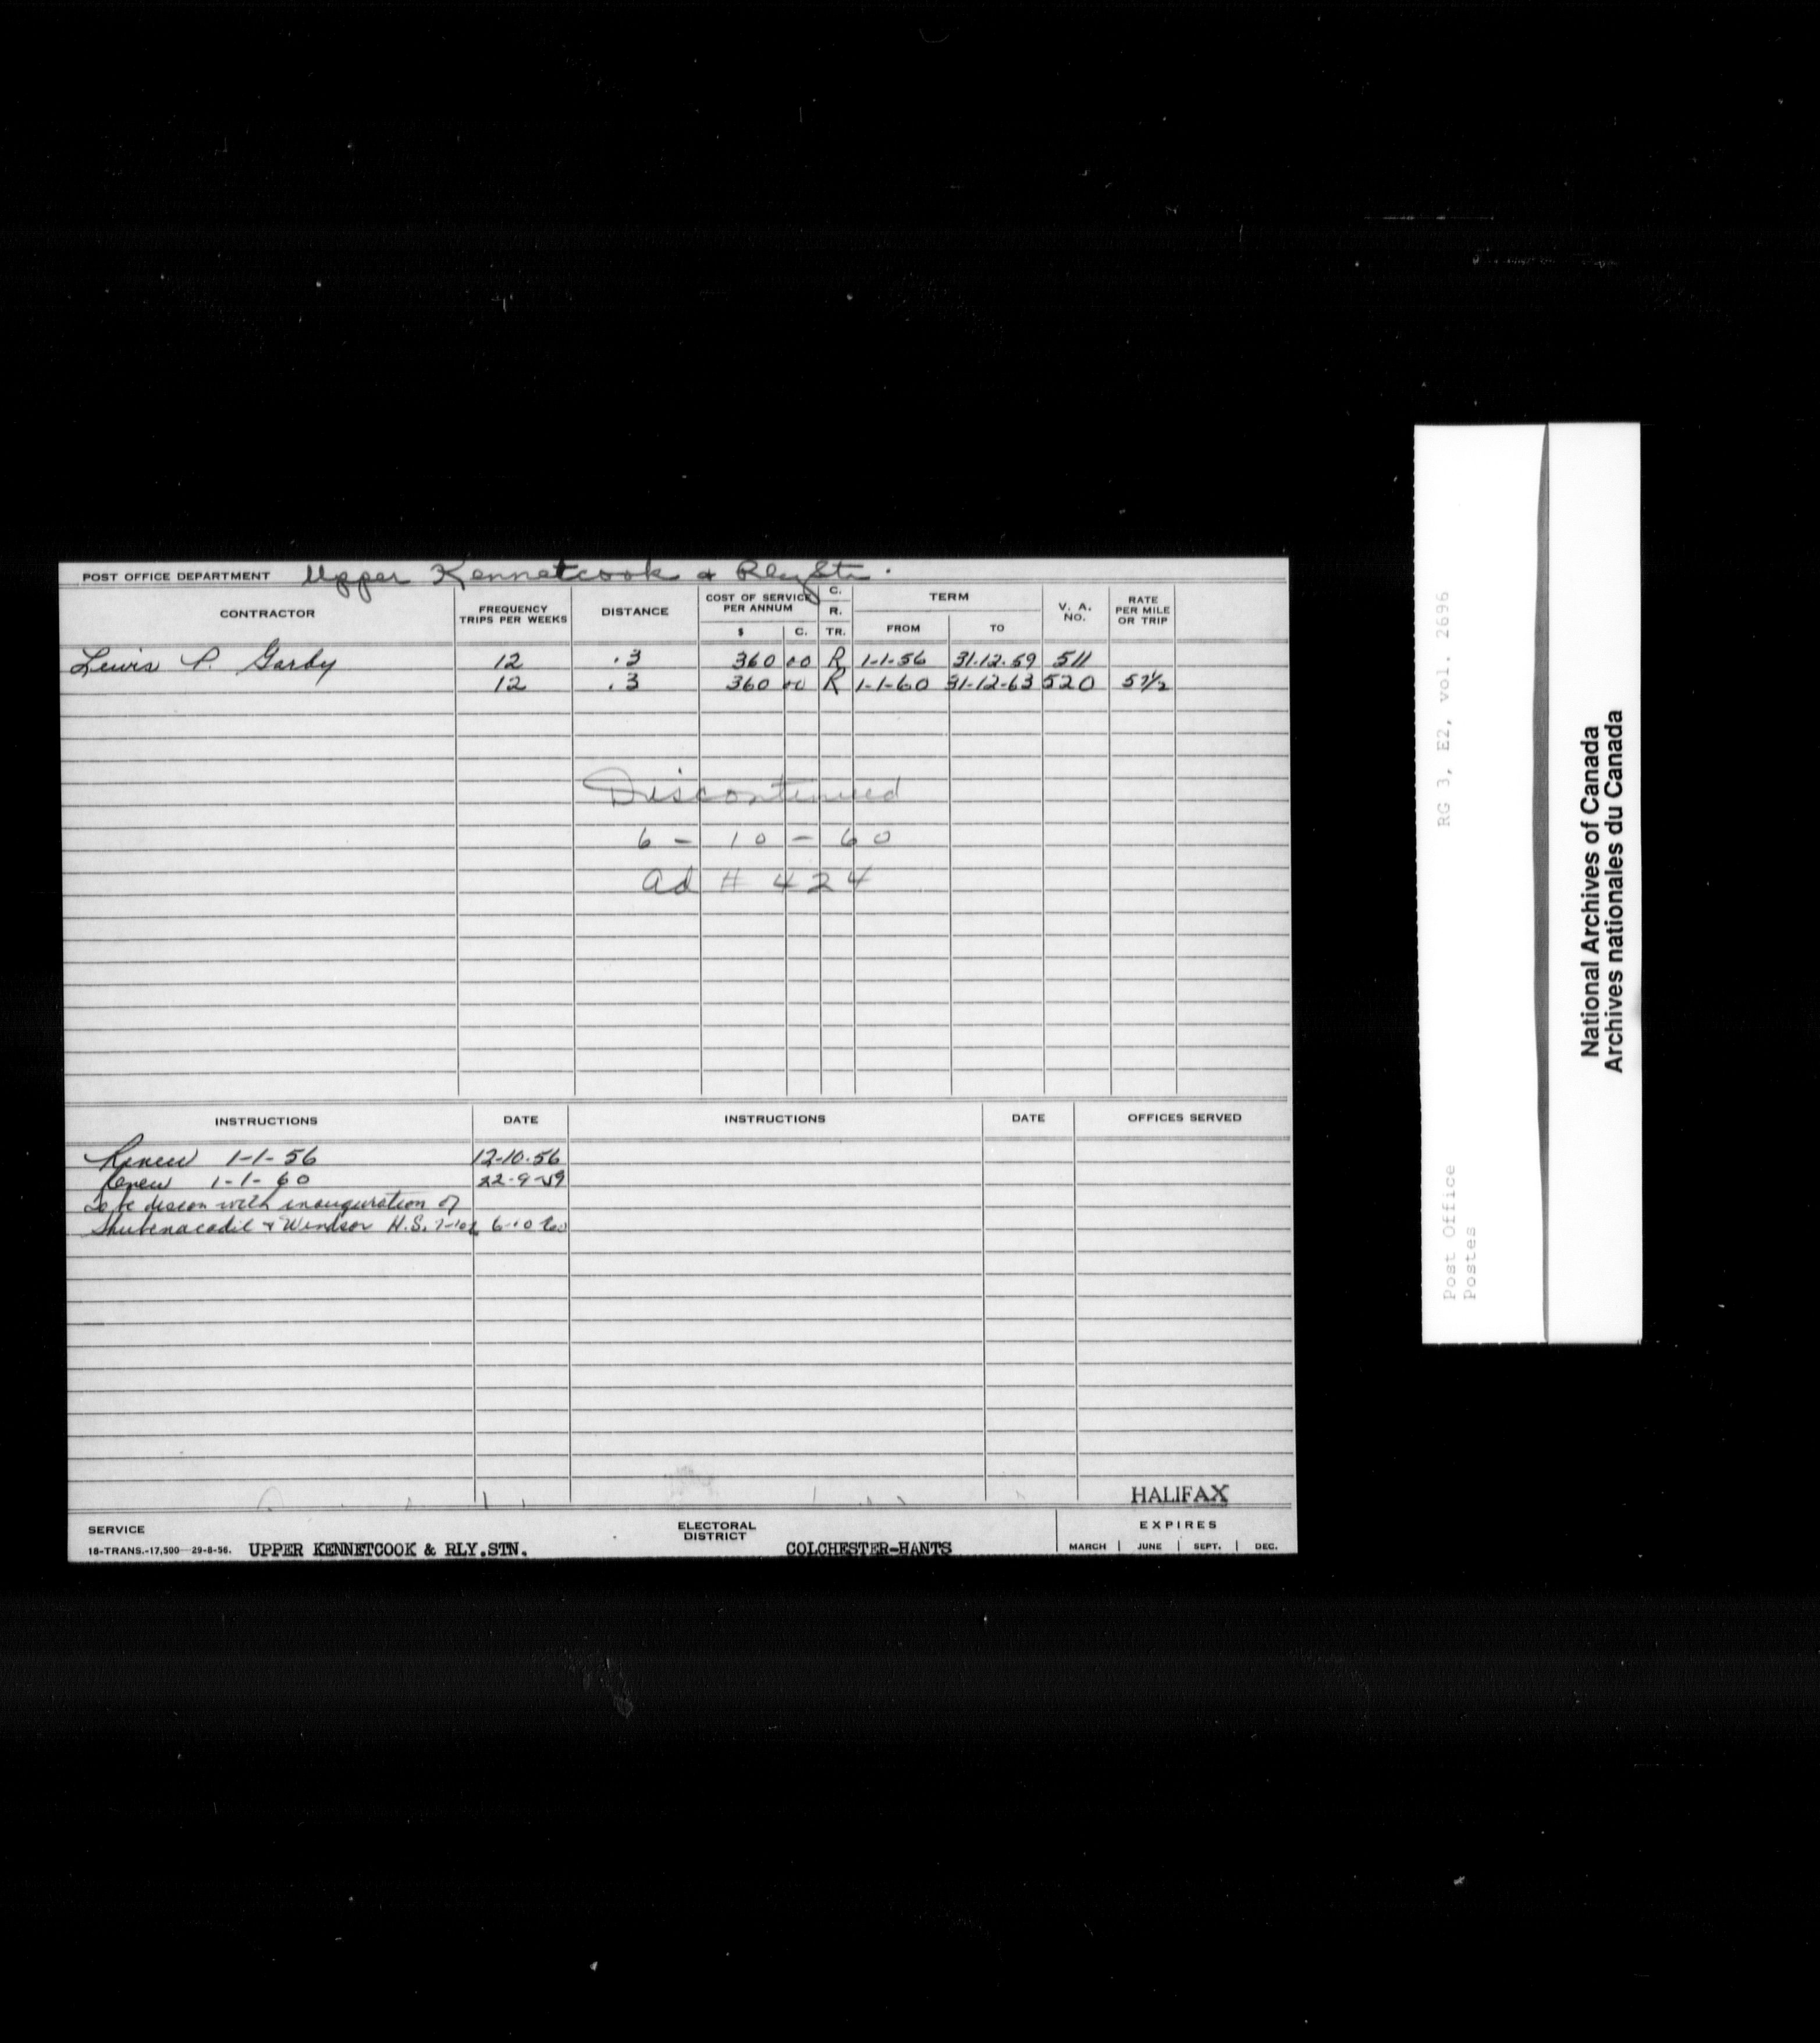 POST OFFICE DEPARTMENT Upper Kennetcook & Rly Stn.
CONTRACTOR FREQUENCY TRIPS PER WEEKS DISTANCE COST OF SERVICE PER ANNUM $ C. C. R. TR. TERM FROM TO V. A. NO. RATE PER MILE OR TRIP
Lewis P. Garby 12 .3 360 00 R 1-1-56 31-12-59 511
12 .3 360 00 R 1-1-60 31-12-63 520 57½
Discontinued
6 - 10 - 60
Ad # 424
INSTRUCTIONS DATE INSTRUCTIONS DATE OFFICES SERVED
Renew 1-1-56 12-10-56
Renew 1-1-60 22-9-59
To be discon with inauguration of
Shubenacadie & Windsor H.S. 6-10-60
HALIFAX
SERVICE ELECTORAL DISTRICT EXPIRES
18-TRANS.-17,500-29-8-56. UPPER KENNETCOOK & RLY.STN. COLCHESTER-HANTS MARCH JUNE SEPT. DEC.
RG 3, E2, vol. 2696
Post Office
Postes
National Archives of Canada
Archives nationales du Canada